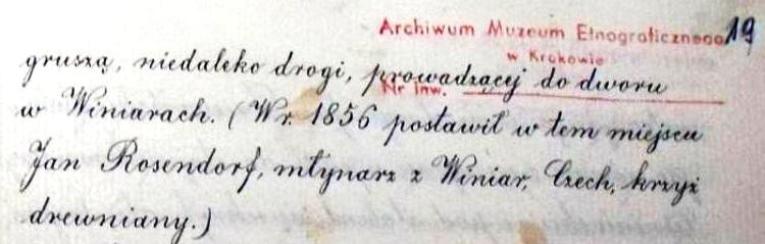 Archiwum Muzeum Etnograficznego 19
w Krakowie
gruszą, niedaleko drogi, prowadzącej do dworu
Nr inw.
w Winiarach. (W r. 1856 postawił w tem miejscu
Jan Rosendorf, młynarz z Winiar, Czech, krzyż
drewniany.)